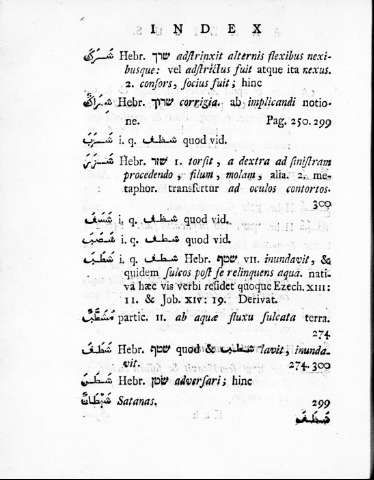 I N D E X
شَرَكَ Hebr. שרך adstrinxit alternis flexibus nexi-
busque: vel adstrictus fuit atque ita nexus.
2. consors, socius fuit; hinc
شِرَاكٌ Hebr. שרוך corrigia. ab implicandi notio-
ne. Pag. 250. 299
i. q. شطف quod vid.
Hebr. שזר 1. torsit, a dextra ad sinistram
procedendo, filum, molam, alia. 2. me-
taphor. transfertur ad oculos contortos.
300
i. q. شطف quod vid.
i. q. شطف quod vid.
شَطَبَ i. q. شطف Hebr. שטף VII. inundavit, &
quidem sulcos post se relinquens aqua. nati-
va hæc vis verbi residet quoque Ezech. XIII:
11. & Job. XIV: 19. Derivat.
مُشَطَّبٌ partic. II. ab aquæ fluxu sulcata terra.
274
شَطَفَ Hebr. שטף quod & شطب lavit, inunda-
vit. 274. 300
شَطَنَ Hebr. שטן adversari; hinc
شَيْطَانٌ Satanas. 299
شَظَفَ